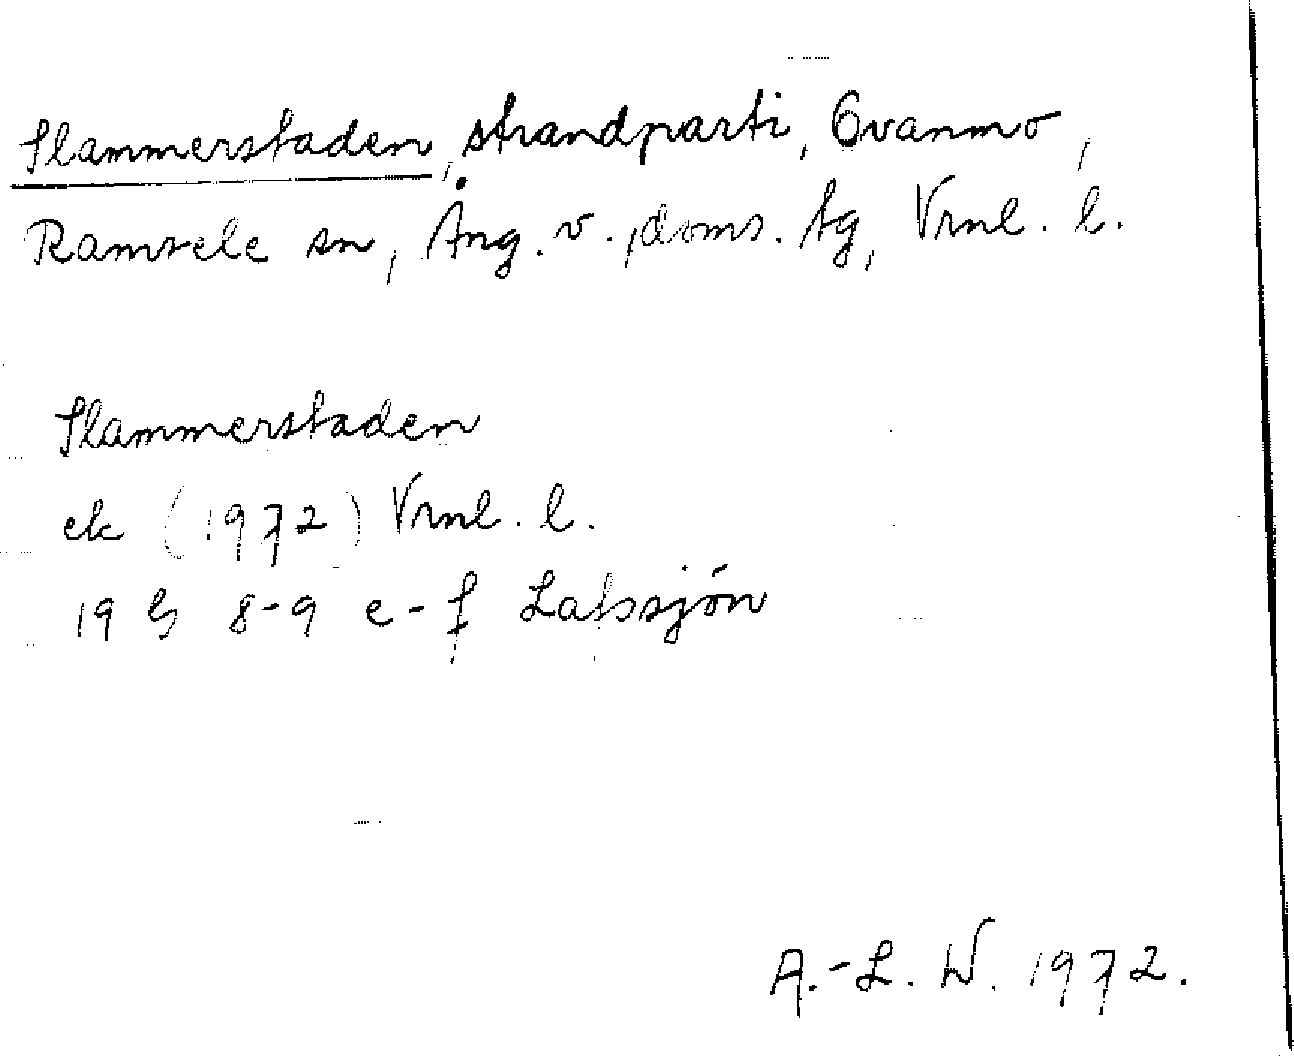 Slammerstaden, strandparti, Ovanmo,
Ramsele sn, Ång. v., doms. tg, Vrnl. l.
Slammerstaden
ek (1972) Vrnl. l.
19 G 8-9 e-f Lafssjön
A.-L. W. 1972.